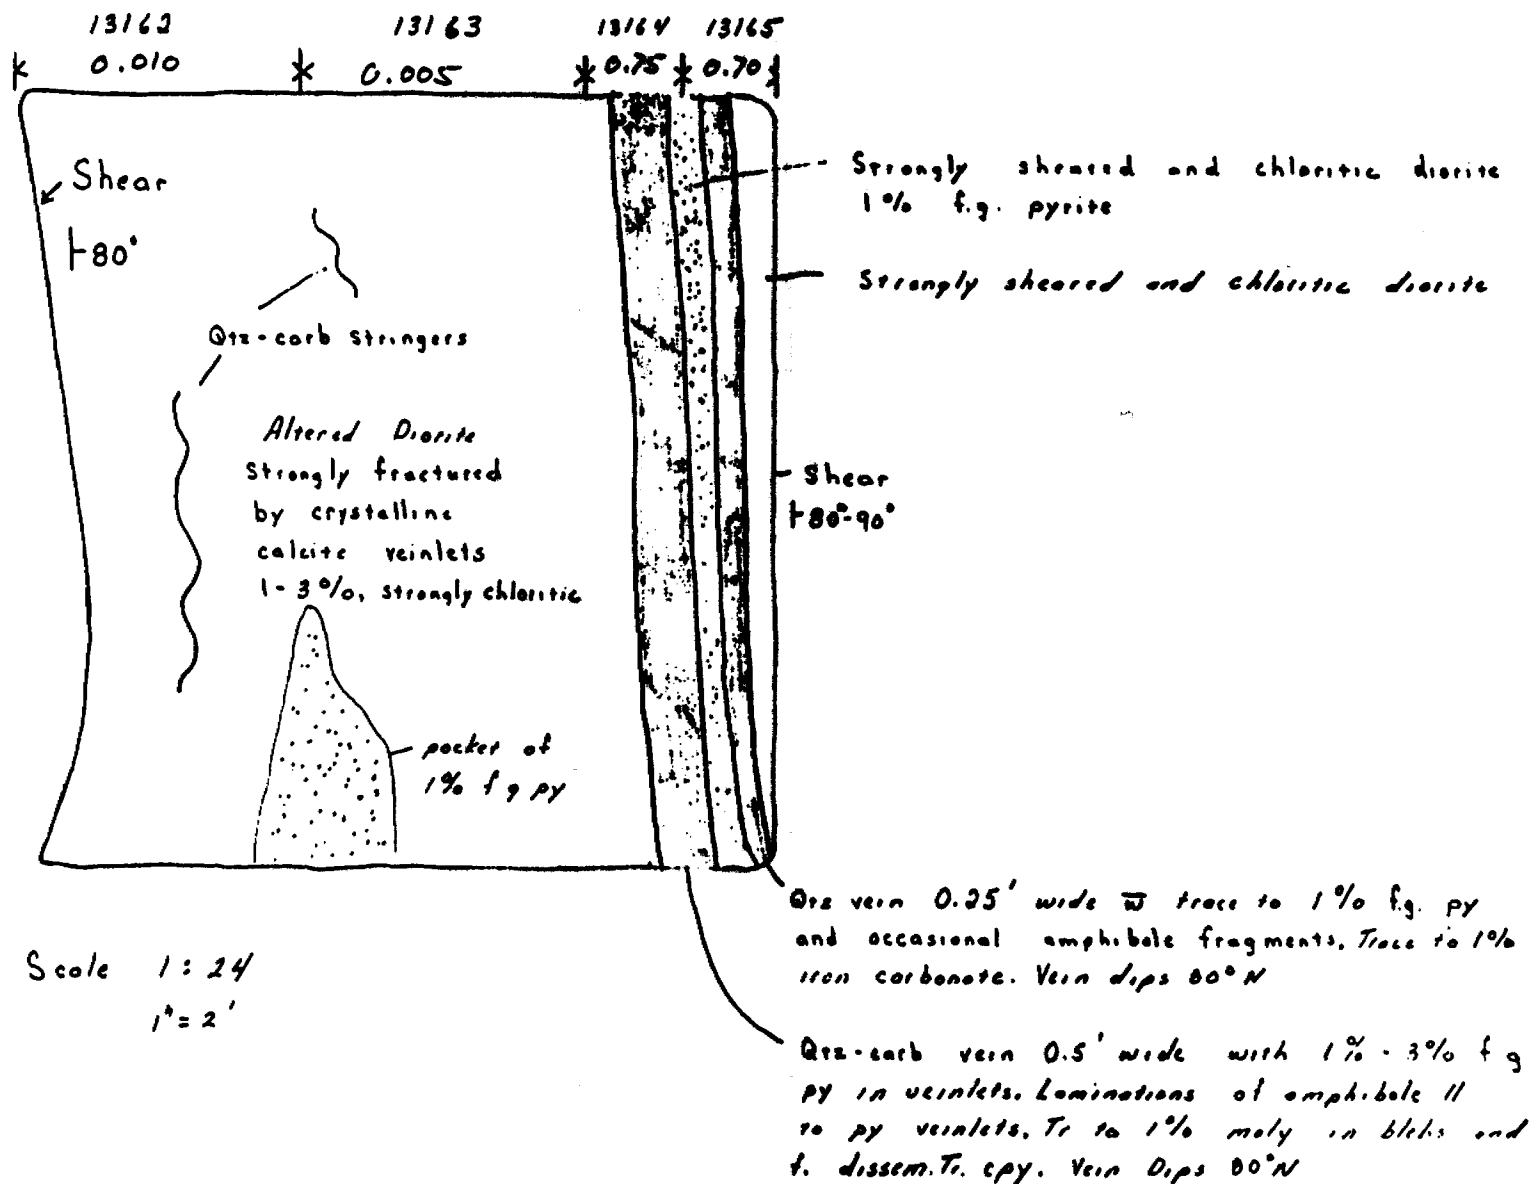 13162 13163 13164 13165
0.010 0.005 0.75 0.70
Shear
80°
Qtz-carb Stringers
Altered Diorite
Strongly fractured
by crystalline
calcite veinlets
1-3%, strongly chloritic
pocket of
1% f g py
Strongly sheared and chloritic diorite
1% f.g. pyrite
Strongly sheared and chloritic diorite
Shear
80°-90°
Qtz vein 0.25' wide w̅ trace to 1% f.g. py
and occasional amphibole fragments. Trace to 1%
iron carbonate. Vein dips 80° N
Qtz-carb vein 0.5' wide with 1% - 3% f g
py in veinlets. Laminations of amphibole //
to py veinlets. Tr to 1% moly in blebs and
f. dissem. Tr. cpy. Vein Dips 80° N
Scale 1:24
1"=2'